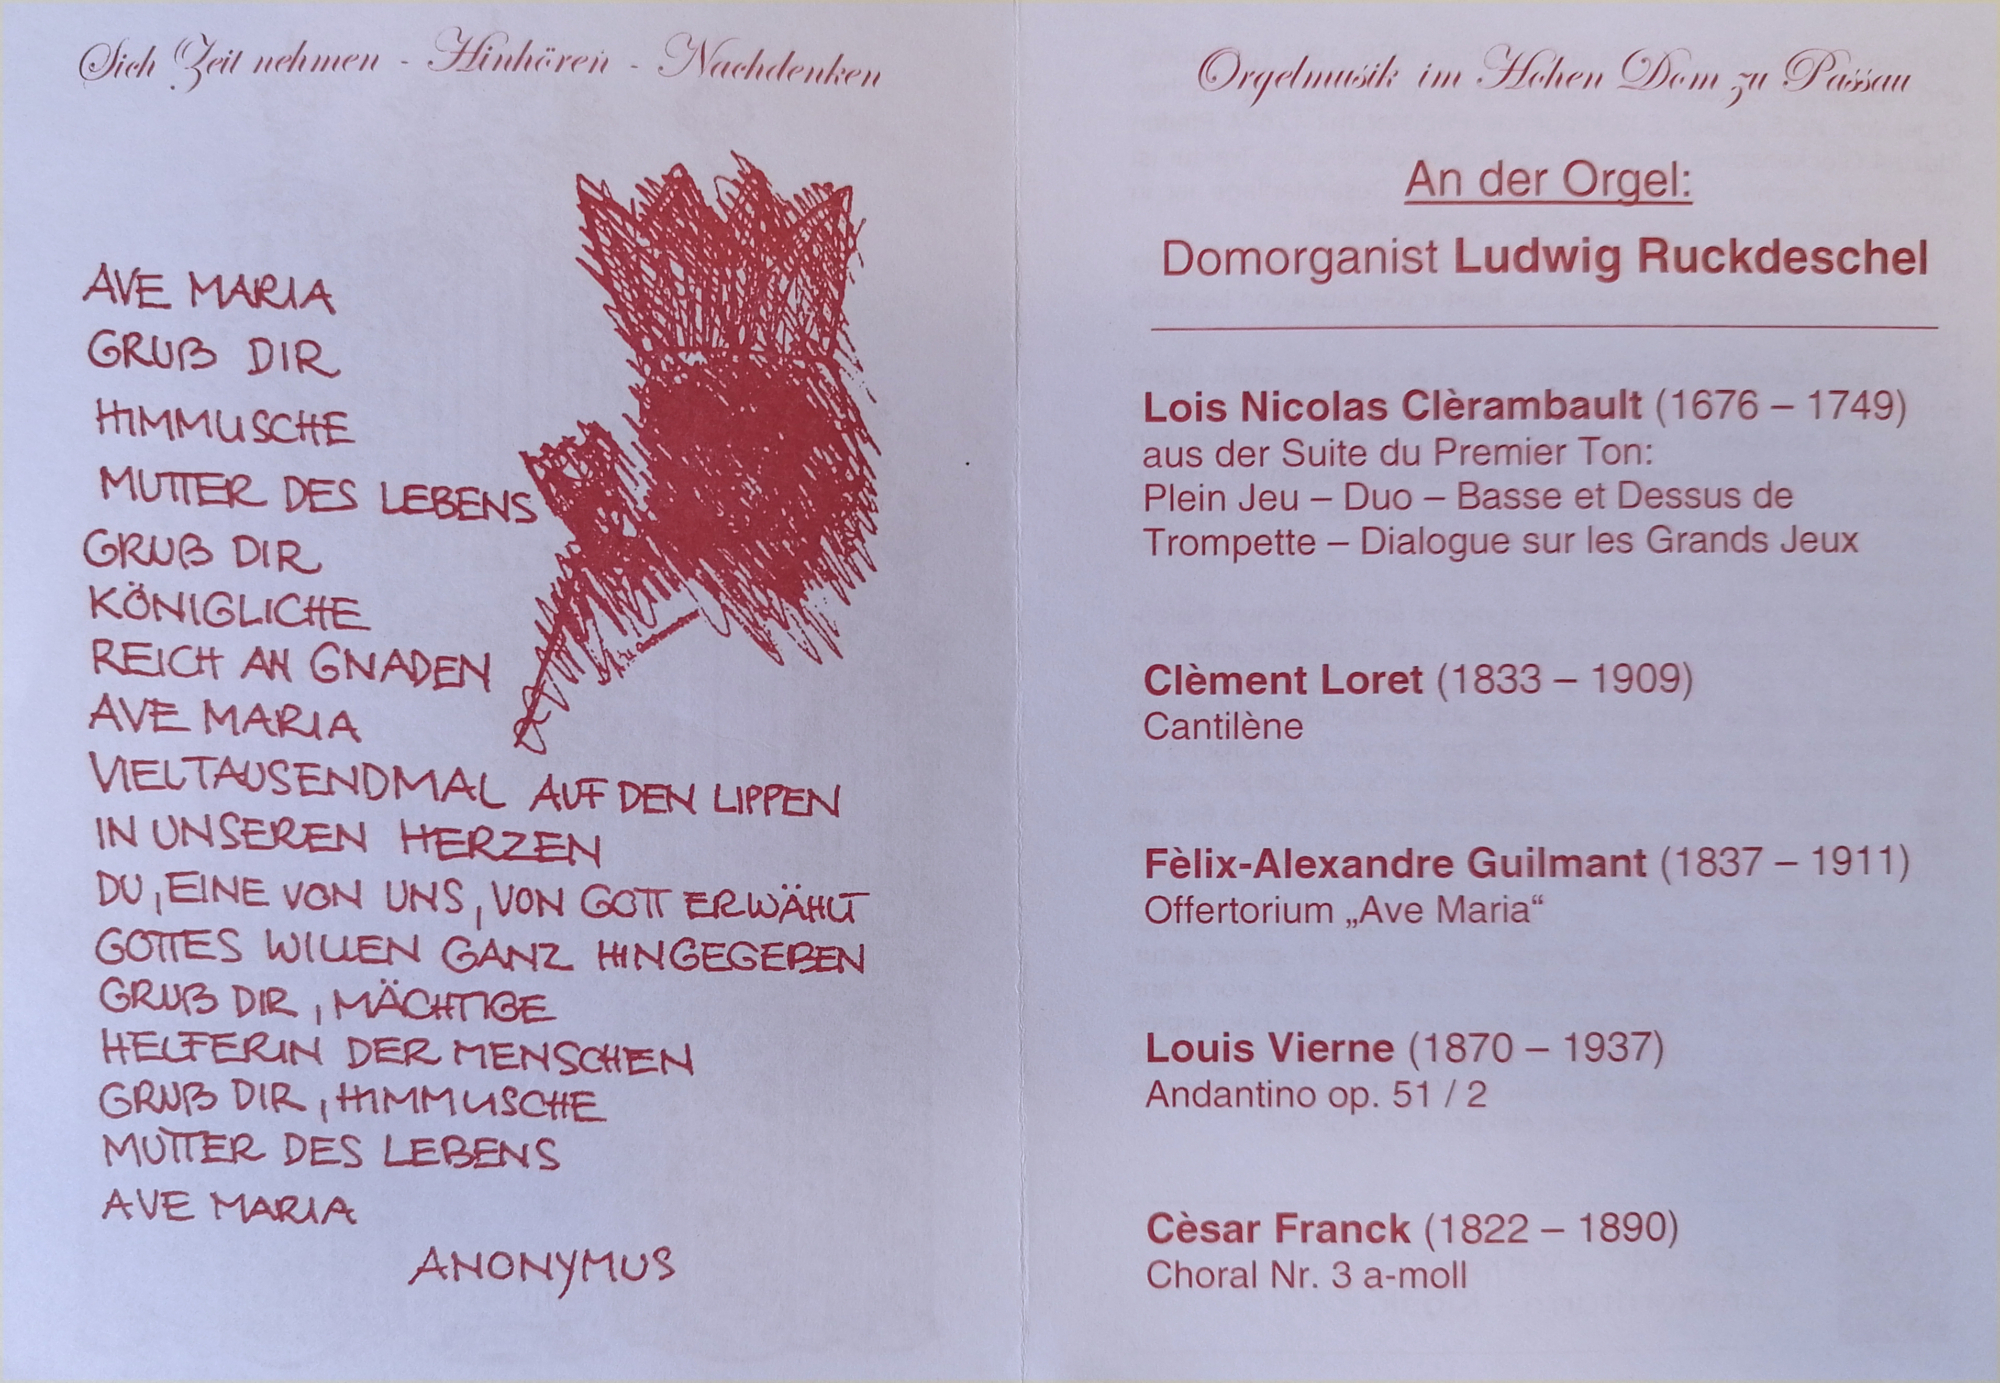 Sich Zeit nehmen - Hinhören - Nachdenken
AVE MARIA
GRUß DIR
HIMMLISCHE
MUTTER DES LEBENS
GRUß DIR
KÖNIGLICHE
REICH AN GNADEN
AVE MARIA
VIELTAUSENDMAL AUF DEN LIPPEN
IN UNSEREN HERZEN
DU, EINE VON UNS, VON GOTT ERWÄHLT
GOTTES WILLEN GANZ HINGEGEBEN
GRUß DIR, MÄCHTIGE
HELFERIN DER MENSCHEN
GRUß DIR, HIMMLISCHE
MUTTER DES LEBENS
AVE MARIA
ANONYMUS
Orgelmusik im Hohen Dom zu Passau
An der Orgel:
Domorganist Ludwig Ruckdeschel
Lois Nicolas Clèrambault (1676 – 1749)
aus der Suite du Premier Ton:
Plein Jeu – Duo – Basse et Dessus de
Trompette – Dialogue sur les Grands Jeux
Clèment Loret (1833 – 1909)
Cantilène
Fèlix-Alexandre Guilmant (1837 – 1911)
Offertorium „Ave Maria“
Louis Vierne (1870 – 1937)
Andantino op. 51 / 2
Cèsar Franck (1822 – 1890)
Choral Nr. 3 a-moll